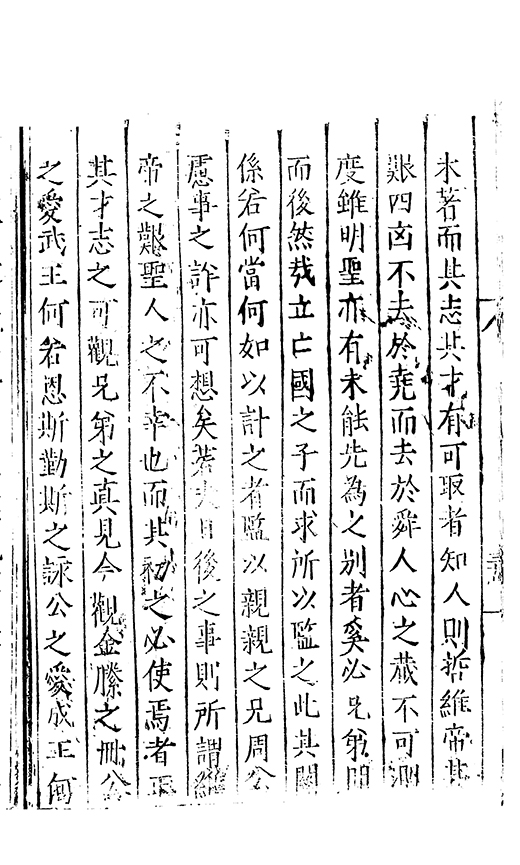 未著而其志其才有可取者知人則哲維帝其
艱四凶不去於堯而去於舜人心之蔵不可測
度雖明聖亦有未能先為之別者奚必兄弟間
而後然㦲立亡國之子而求所以監之此其關
係若何當何如以計之者監以親親之兄周公
慮事之詳亦可想矣若夫日後之事則所謂維
帝之艱聖人之不幸也而其初之必使焉者正
其才志之可觀兄弟之真見今觀金縢之冊公
之愛武王何若恩斯勤斯之誅公之愛成王何